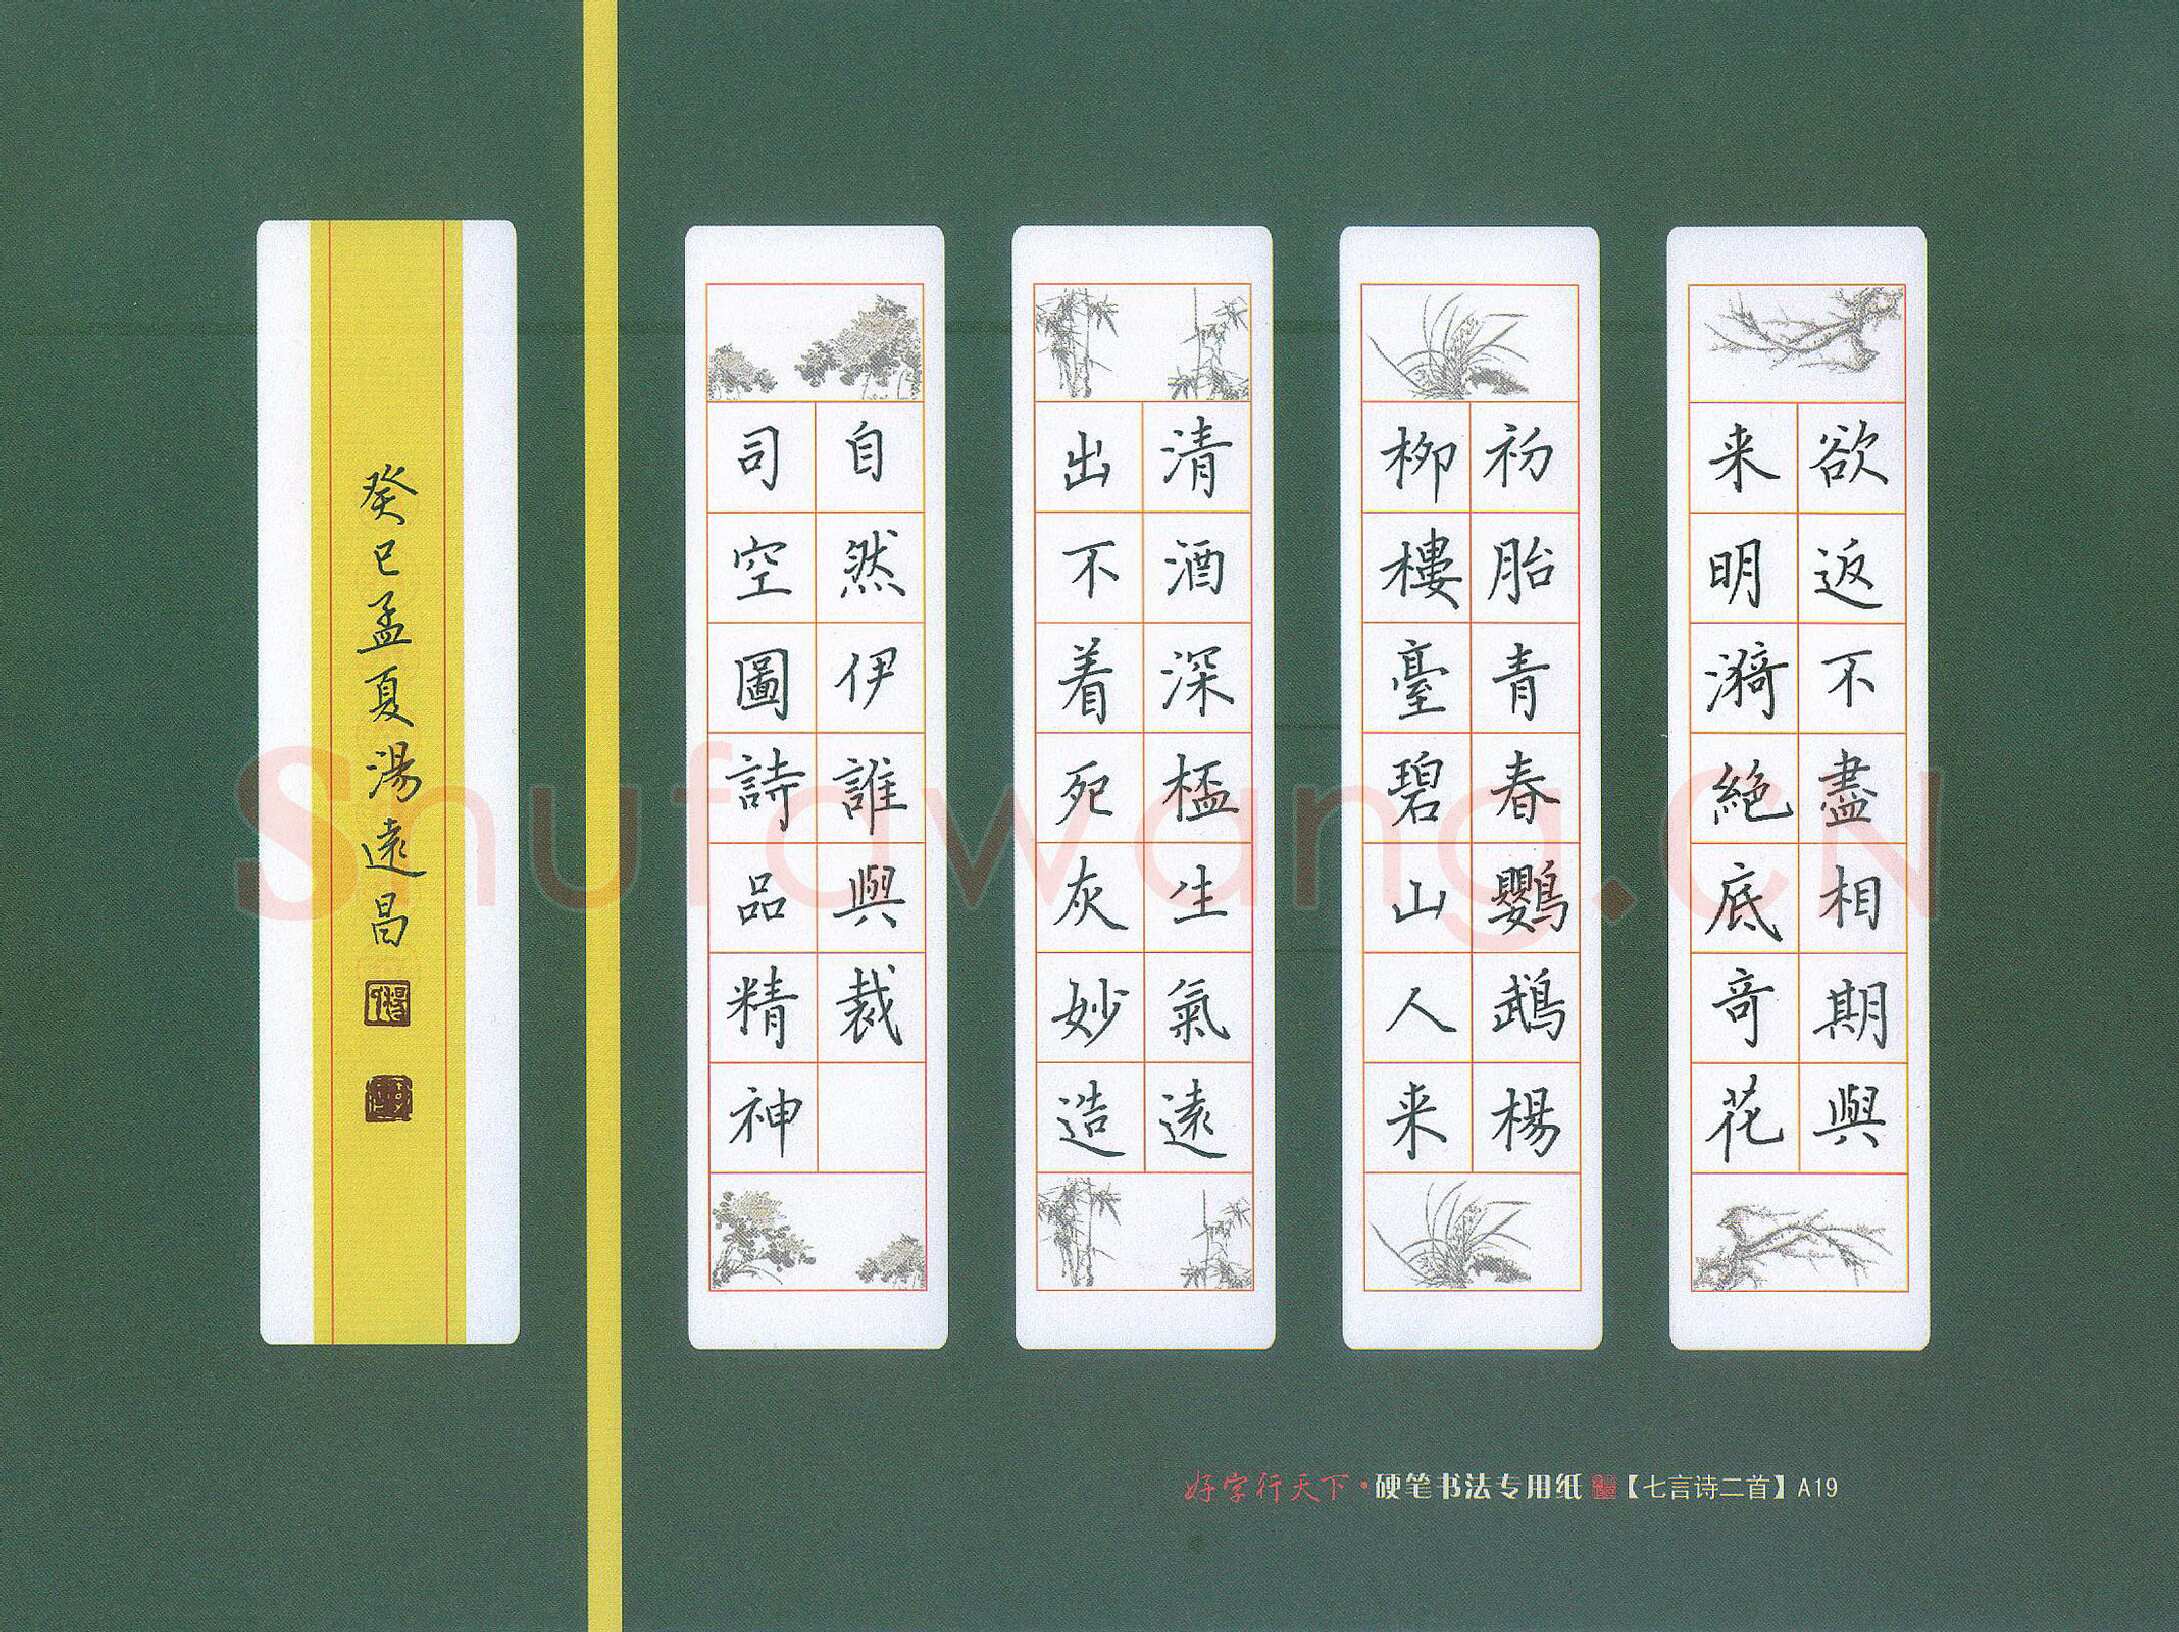 欲返不盡相期與
来明漪絶底竒花
初胎青春鸚鵡楊
柳樓臺碧山人来
清酒深桮生氣遠
出不着死灰妙造
自然伊誰與裁
司空圖詩品精神
癸巳孟夏湯遠昌
好字行天下·硬笔书法专用纸【七言诗二首】A19
Shufawang.CN